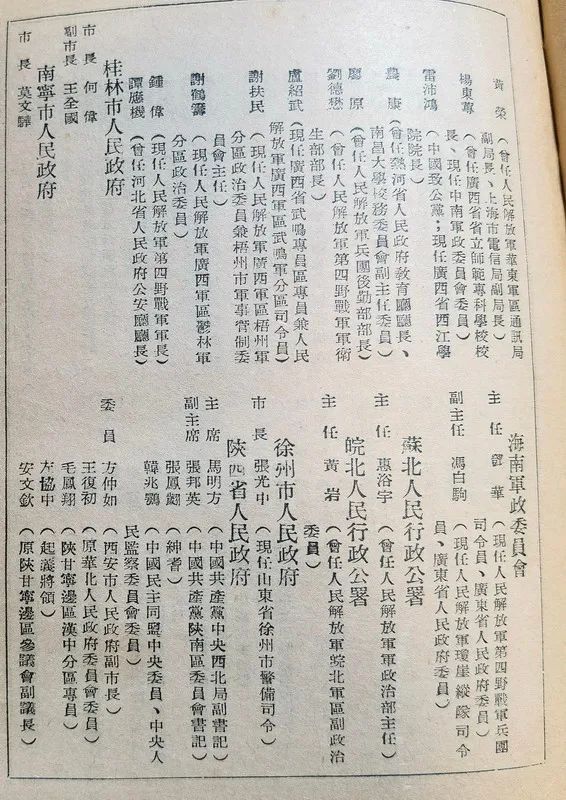 黃榮（曾任人民解放軍華東軍區通訊局
副局長、上海市電信局副局長）
楊東蓴（曾任廣西省省立師範專科學校校
長、現任中南軍政委員會委員）
雷沛鴻（中國致公黨；現任廣西省西江學
院院長）
農康（曾任熱河省人民政府教育廳廳長、
南昌大學校務委員會副主任委員）
廖原（曾任人民解放軍兵團後勤部部長）
劉德懋（曾任人民解放軍第四野戰軍軍衛
生部部長）
盧紹武（現任廣西省武鳴專員區專員兼人民
解放軍廣西軍區武鳴軍分區司令員）
謝扶民（現任人民解放軍廣西軍區梧州軍
分區政治委員兼梧州市軍事管制委
員會主任）
謝鶴籌（現任人民解放軍廣西軍區鬱林軍
分區政治委員）
鍾偉（現任人民解放軍第四野戰軍軍長）
譚應機（曾任河北省人民政府公安廳廳長）
桂林市人民政府
市長 何偉
副市長 王全國
南寧市人民政府
市長 莫文驊
海南軍政委員會
主任 鄧華（現任人民解放軍第四野戰軍兵團
司令員、廣東省人民政府委員）
副主任 馮白駒（現任人民解放軍瓊崖縱隊司令
員、廣東省人民政府委員）
蘇北人民行政公署
主任 惠浴宇（曾任人民解放軍軍政治部主任）
皖北人民行政公署
主任 黃岩（曾任人民解放軍皖北軍區副政治
委員）
徐州市人民政府
市長 張光中（現任山東省徐州市警備司令）
陝西省人民政府
主席 馬明方（中國共產黨中央西北局副書記）
副主席 張邦英（中國共產黨陝南區委員會書記）
張鳳翽（紳耆）
韓兆鶚（中國民主同盟中央委員、中央人
民監察委員會委員）
委員 方仲如（西安市人民政府副市長）
王復初（原華北人民政府委員會委員）
毛鳳翔（陝甘寧邊區漢中分區專員）
左協中（起義將領）
安文欽（原陝甘寧邊區參議會副議長）